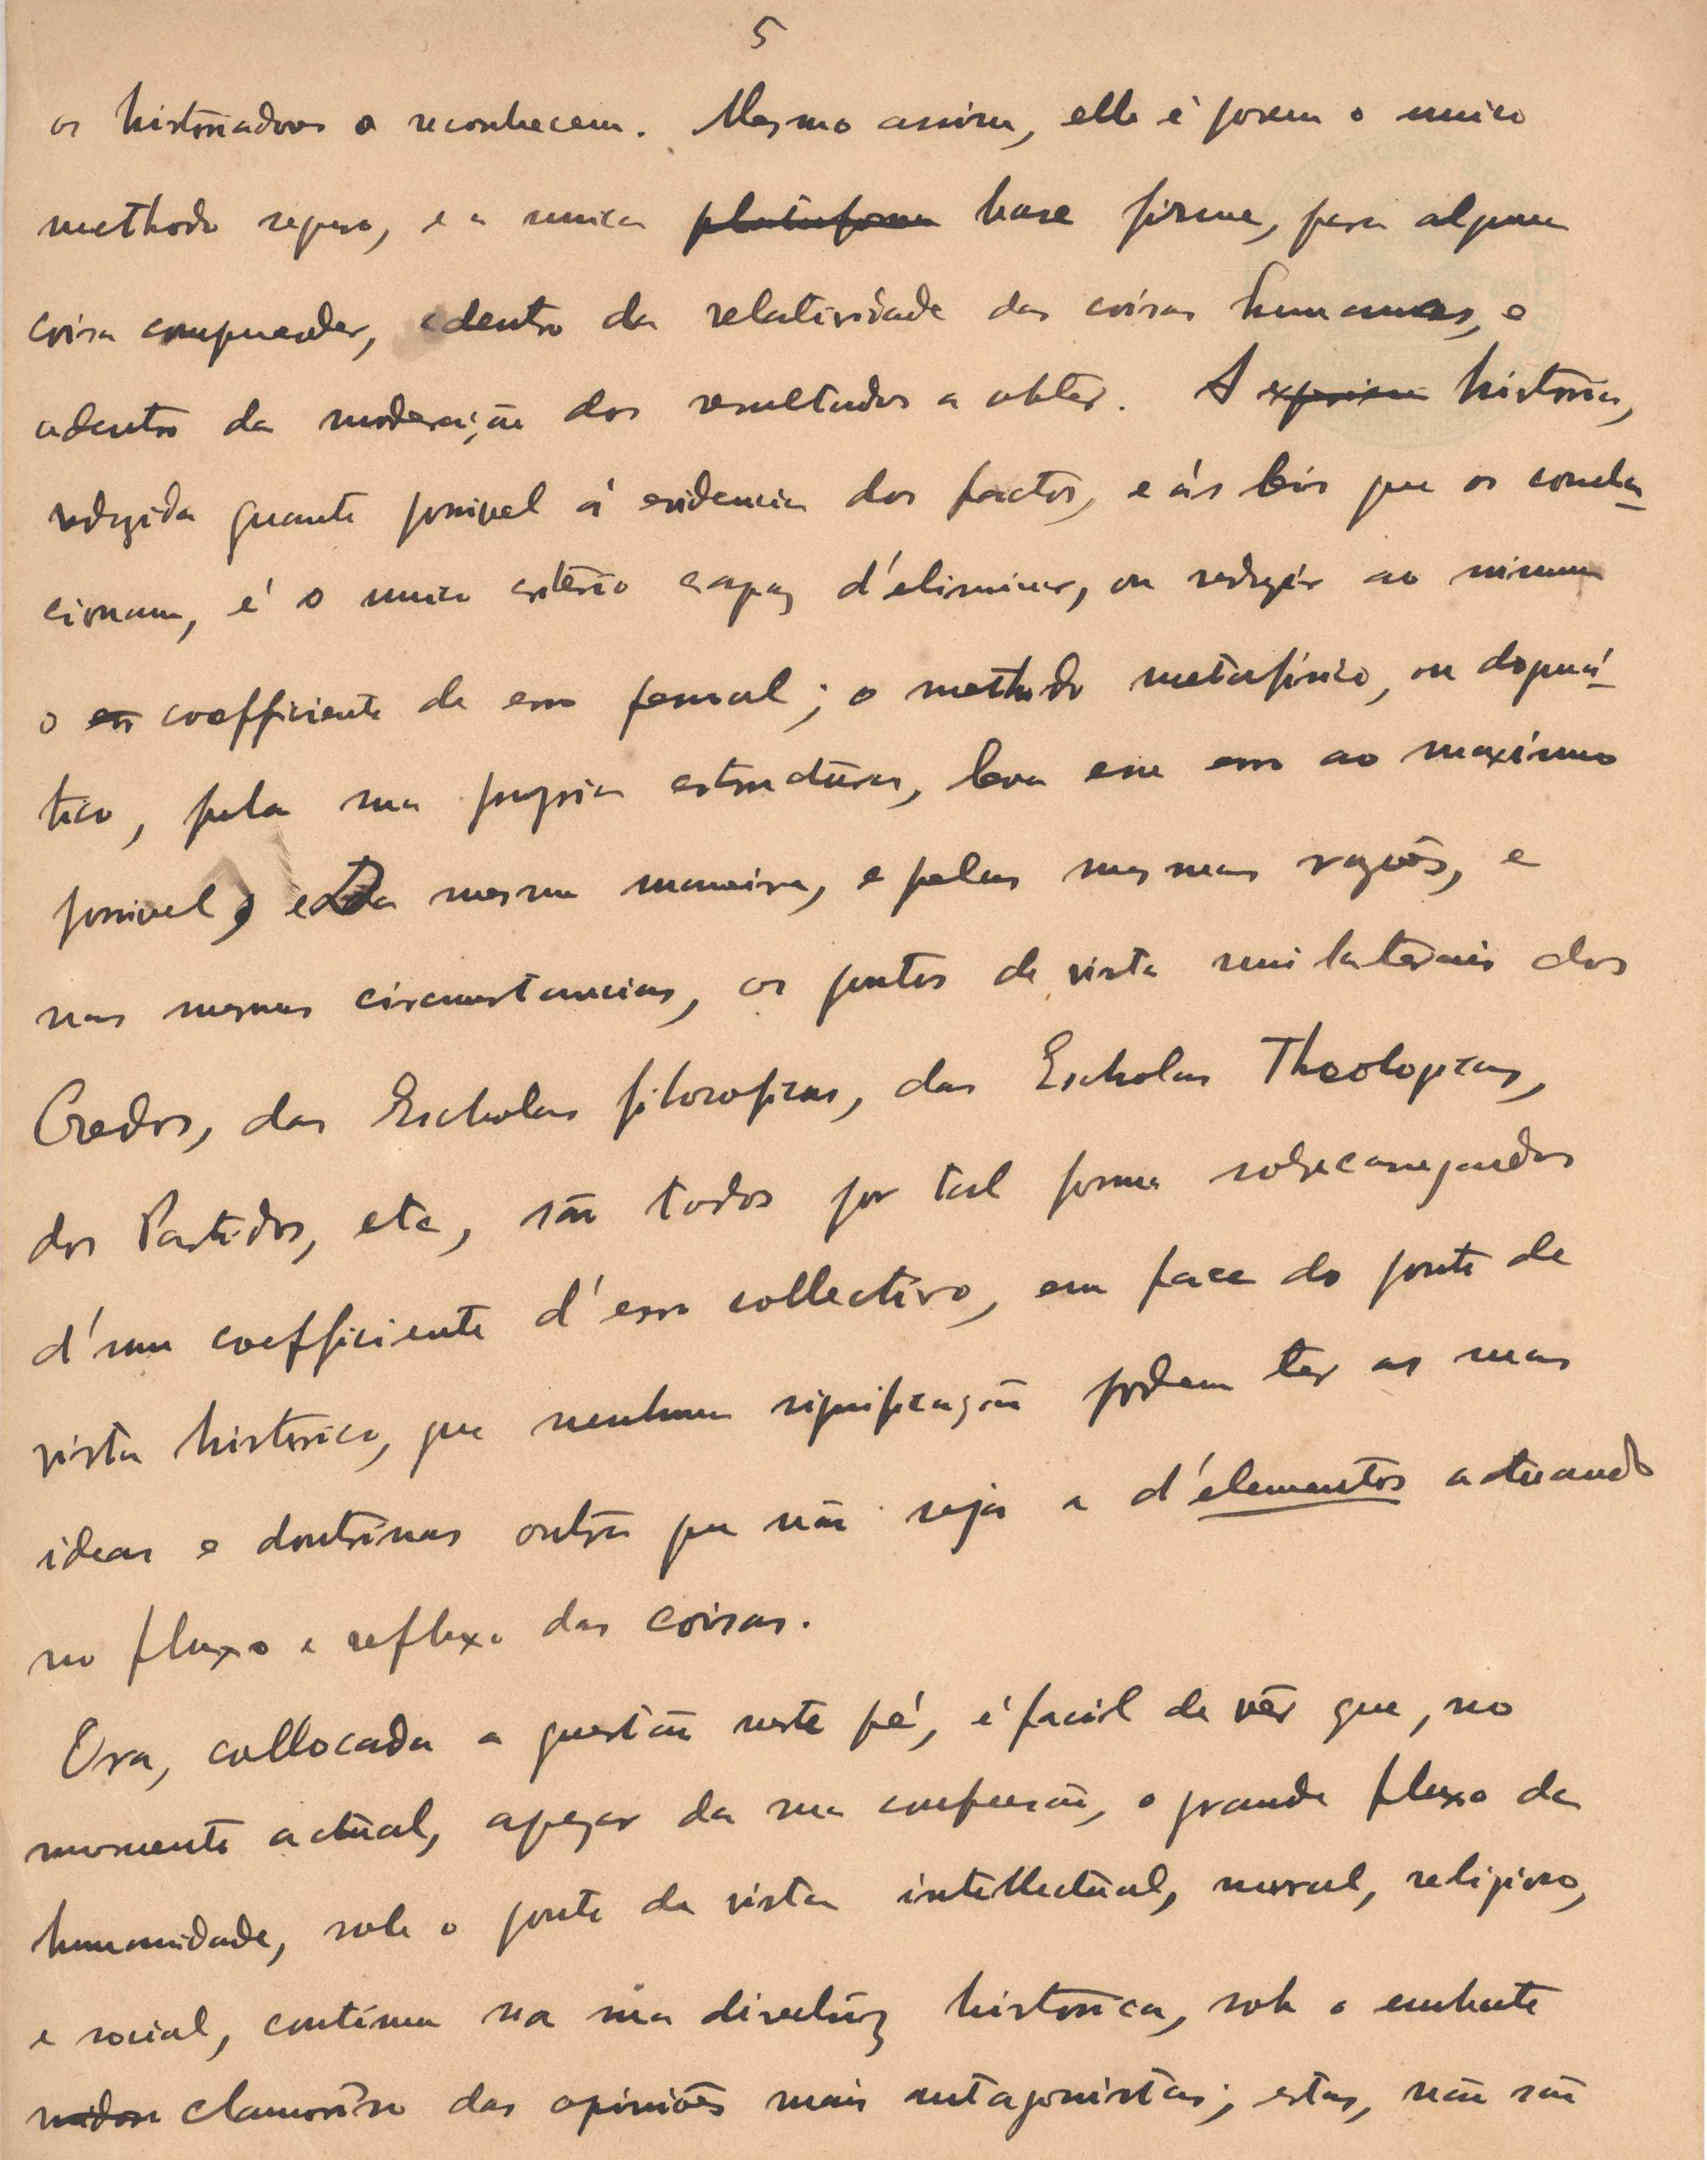 5
os historiadores o reconhecem. Mesmo assim, elle é porem o unico
methodo seguro, e a unica plataforma base firme, para alguma
coisa comprender, adentro da relatividade das coisas humanas, e
adentro da moderação dos resultados a obter. A historia,
reduzida quanto possivel á evidencia dos factos, e ás leis que os condi-
cionam, é o unico criterio capaz d'eliminar, ou reduzir ao minimo
o err coefficiente de erro pessoal; o methodo metafisico, ou dogmá-
tico, pela sua propria estructura, leva esse erro ao maximo
possivel; e Da mesma maneira, e pelas mesmas razões, e
nas mesmas circumstancias, os pontos de vista unilaterais dos
Credos, das Escholas filosoficas, das Escholas Theologicas,
dos Partidos, etc, são todos por tal forma sobrecarregados
d'um coefficiente d'erro collectivo, em face do ponto de
vista historico, que nenhuma significação podem ter as suas
ideas e doutrinas outra que não seja a d'elementos actuando
no fluxo e reflexo das coisas.
Ora, collocada a questão neste pé, é facil de vêr que, no
momento actual, apezar da sua confusão, o grande fluxo da
humanidade, sob o ponto de vista intellectual, moral, religioso,
e social, continua na sua directriz historica, sob o embate
ruidoso clamoroso das opiniões mais antagonistas; estas, não são